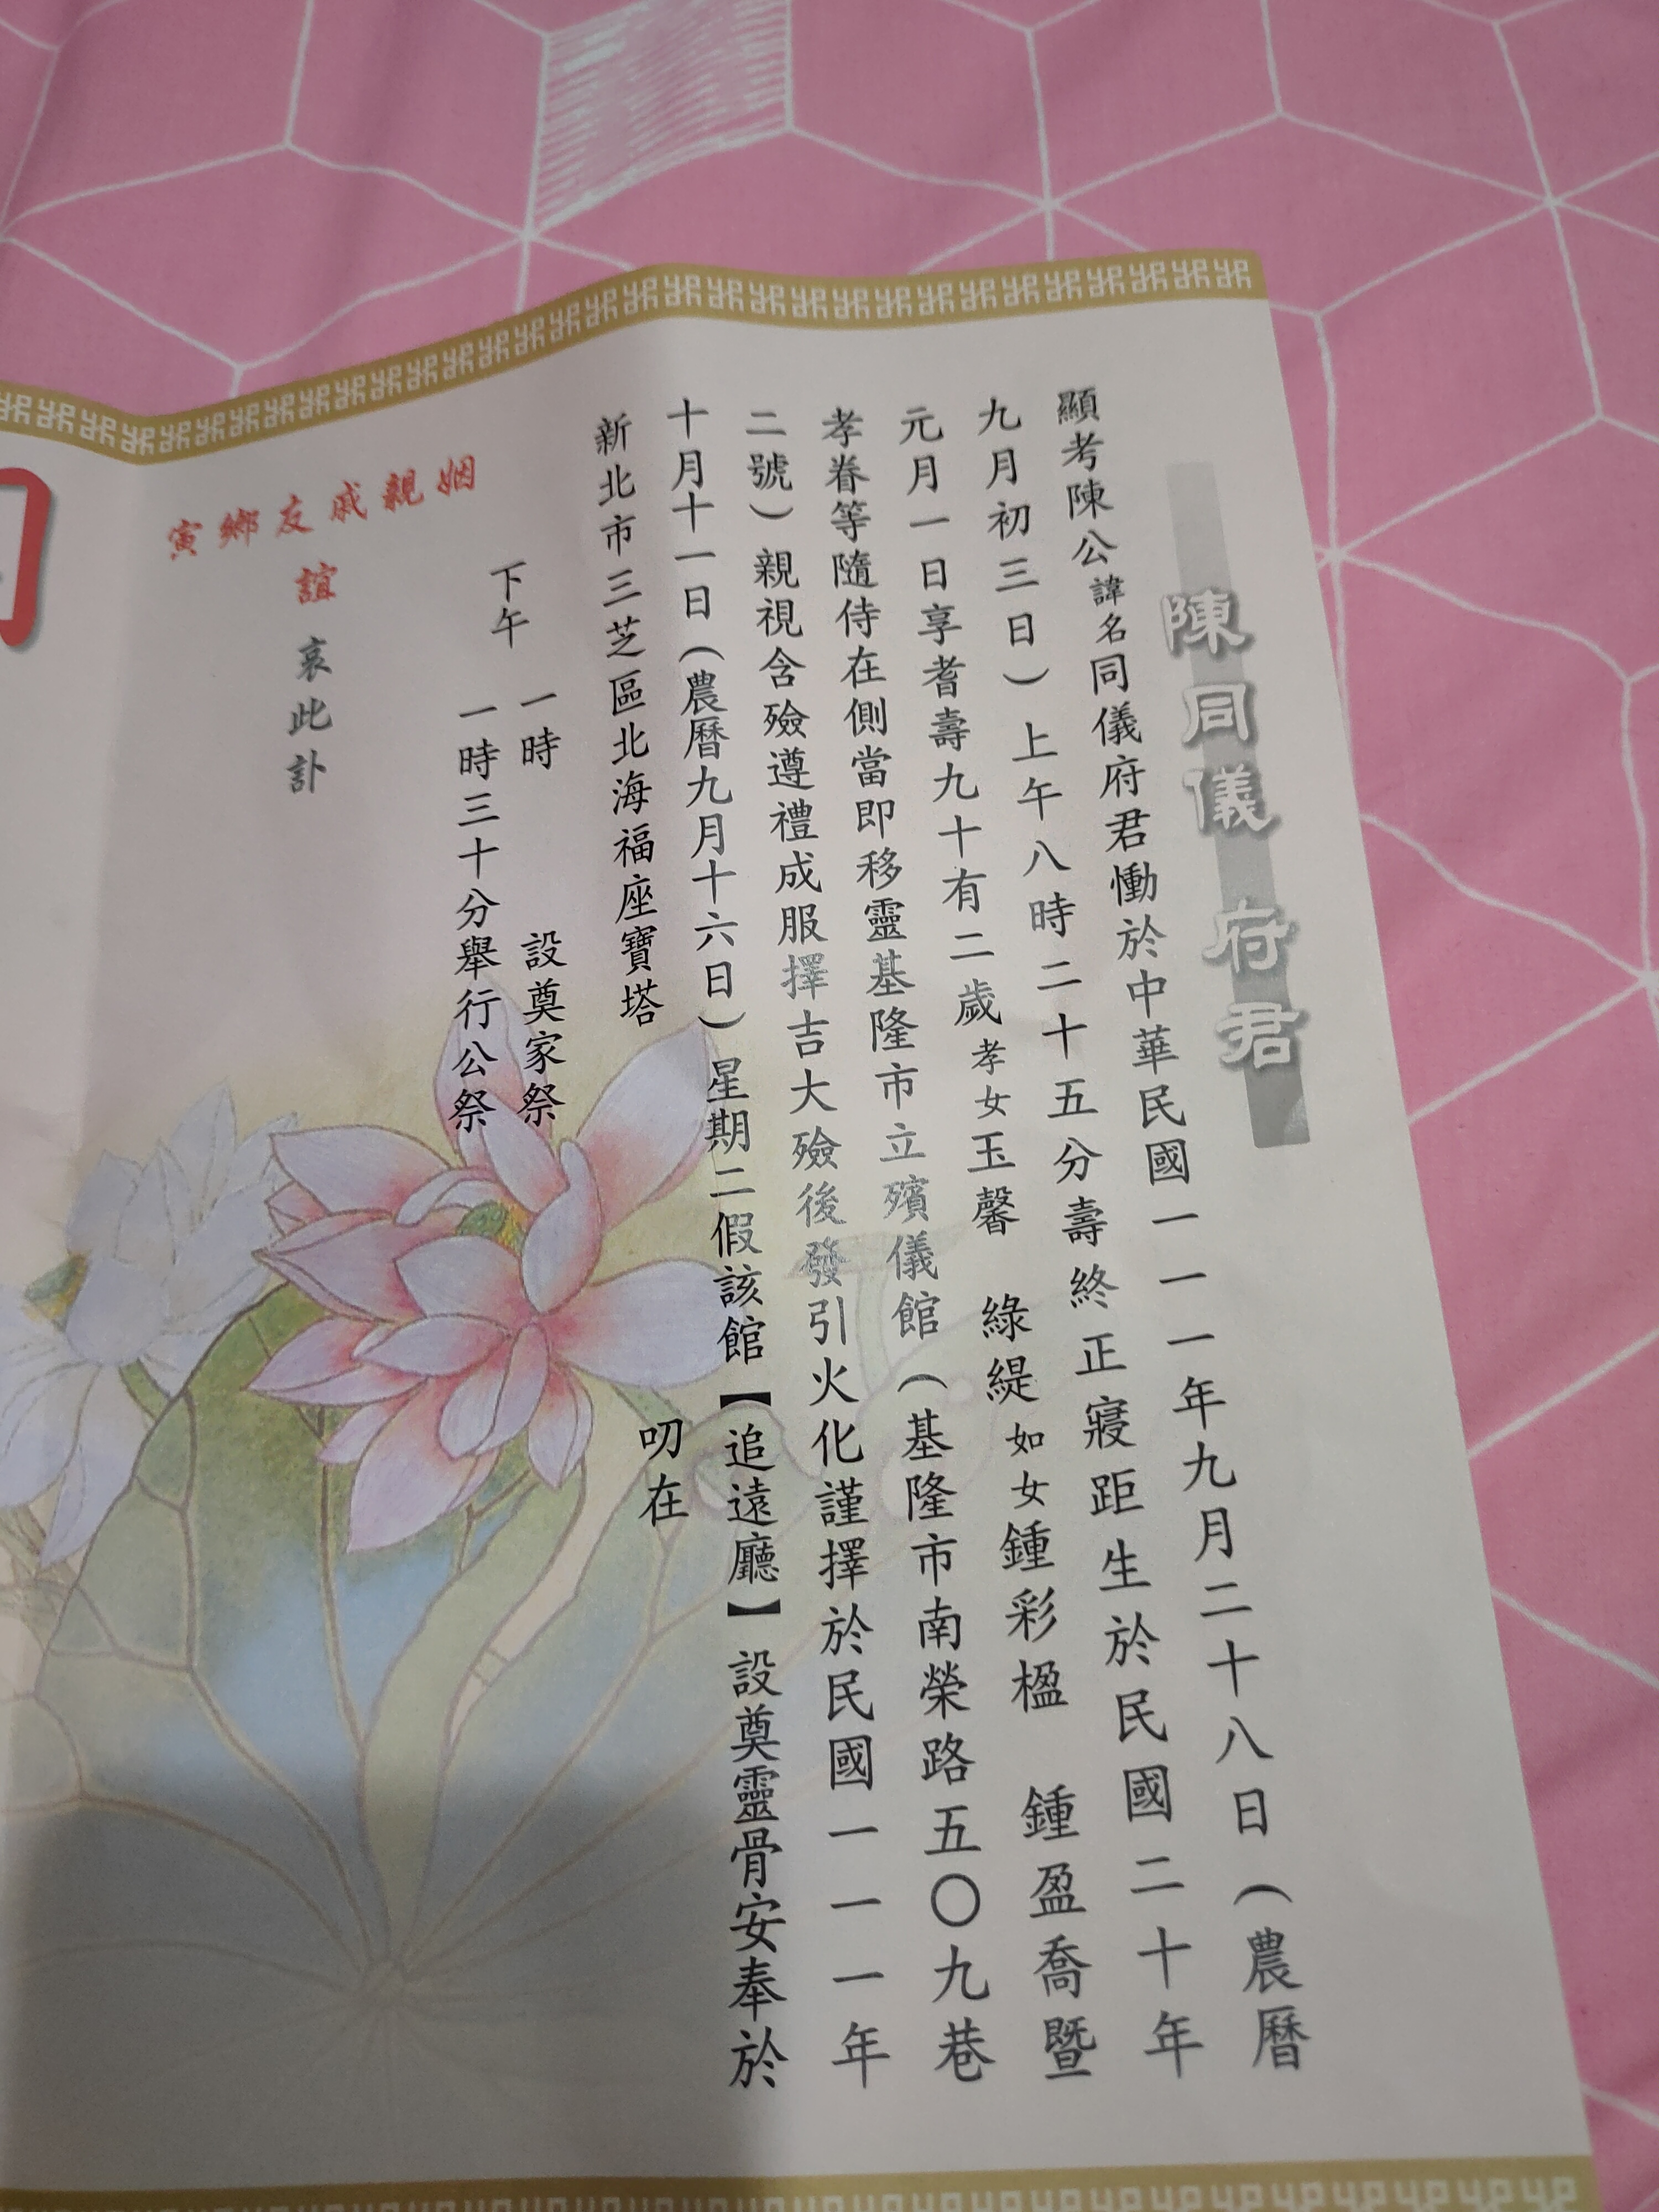 陳同儀 府君
顯考陳公諱名同儀府君慟於中華民國一一一年九月二十八日(農曆
九月初三日)上午八時二十五分壽終正寢距生於民國二十年
元月一日享耆壽九十有二歲孝女玉馨 綠緹如女鍾彩楹 鍾盈喬暨
孝眷等隨侍在側當即移靈基隆市立殯儀館(基隆市南榮路五〇九巷
二號)親視含殮遵禮成服擇吉大殮後發引火化謹擇於民國一一一年
十月十一日(農曆九月十六日)星期二假該館【追遠廳】設奠靈骨安奉於
新北市三芝區北海福座寶塔
叨在
下午
一時 設奠家祭
一時三十分舉行公祭
姻親戚友鄉寅
誼
哀此訃